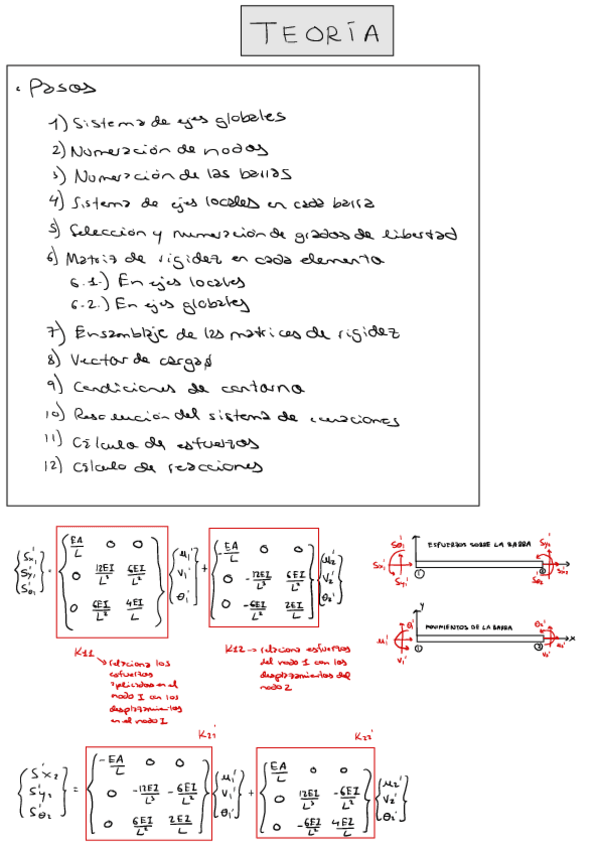 TEORÍA
• Pasos
1) Sistema de ejes globales
2) Numeración de nodos
3) Numeración de las barras
4) Sistema de ejes locales en cada barra
5) Selección y numeración de grados de libertad
6) Matriz de rigidez en cada elemento
6.1.) En ejes locales
6.2.) En ejes globales
7) Ensamblaje de las matrices de rigidez
8) Vector de cargas
9) Condiciones de contorno
10) Resolución del sistema de ecuaciones
11) Cálculo de esfuerzos
12) Cálculo de reacciones
{Sx₁' Sy₁' Sθ₁'} = {EA/L 0 0; 0 12EI/L³ 6EI/L²; 0 6EI/L² 4EI/L} {u₁' v₁' θ₁'} + {-EA/L 0 0; 0 -12EI/L³ 6EI/L²; 0 -6EI/L² 2EI/L} {u₂' v₂' θ₂'}
Sθ₁' Sx₁' Sy₁' 1 ESFUERZOS SOBRE LA BARRA 2 Sy₂' Sθ₂' Sx₂'
y θ₁' u₁' v₁' 1 MOVIMIENTOS DE LA BARRA 2 θ₂' u₂' v₂' x
K11 → relaciona los
esfuerzos
aplicados en el
nodo I con los
desplazamientos
en el nodo I
K12 → relaciona esfuerzos
del nodo 1 con los
desplazamientos del
nodo 2
K21'
K22'
{Sx₂' Sy₂' Sθ₂'} = {-EA/L 0 0; 0 -12EI/L³ -6EI/L²; 0 6EI/L² 2EI/L} {u₁' v₁' θ₁'} + {EA/L 0 0; 0 12EI/L³ -6EI/L²; 0 -6EI/L² 4EI/L} {u₂' v₂' θ₂'}